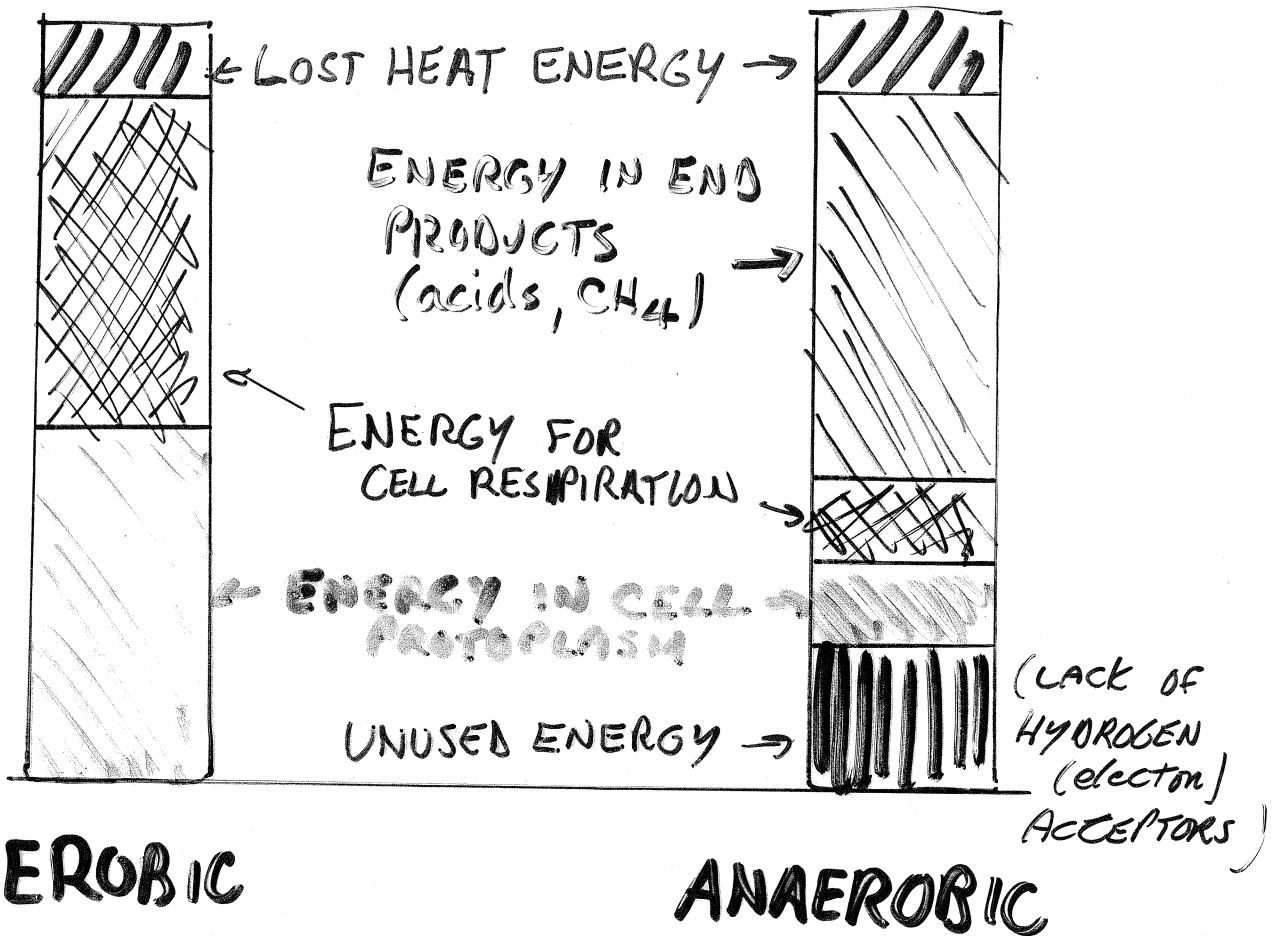 ← LOST HEAT ENERGY →
ENERGY IN END
PRODUCTS →
(acids, CH4)
ENERGY FOR
CELL RESPIRATION
← ENERGY IN CELL →
PROTOPLASM
UNUSED ENERGY →
(LACK OF
HYDROGEN
(electon)
ACCEPTORS)
EROBIC
ANAEROBIC